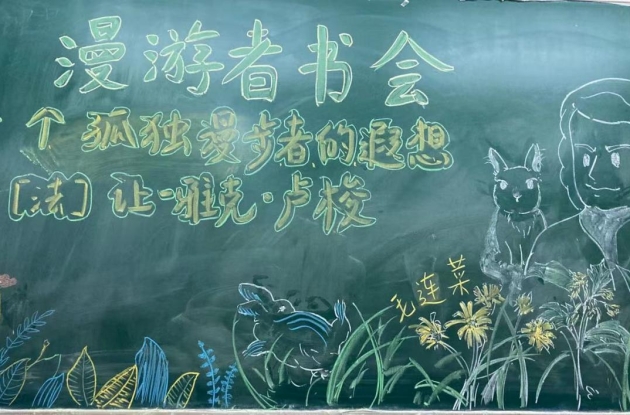 漫游者书会
个孤独漫步者的遐想
[法]让-雅克·卢梭
毛连菜